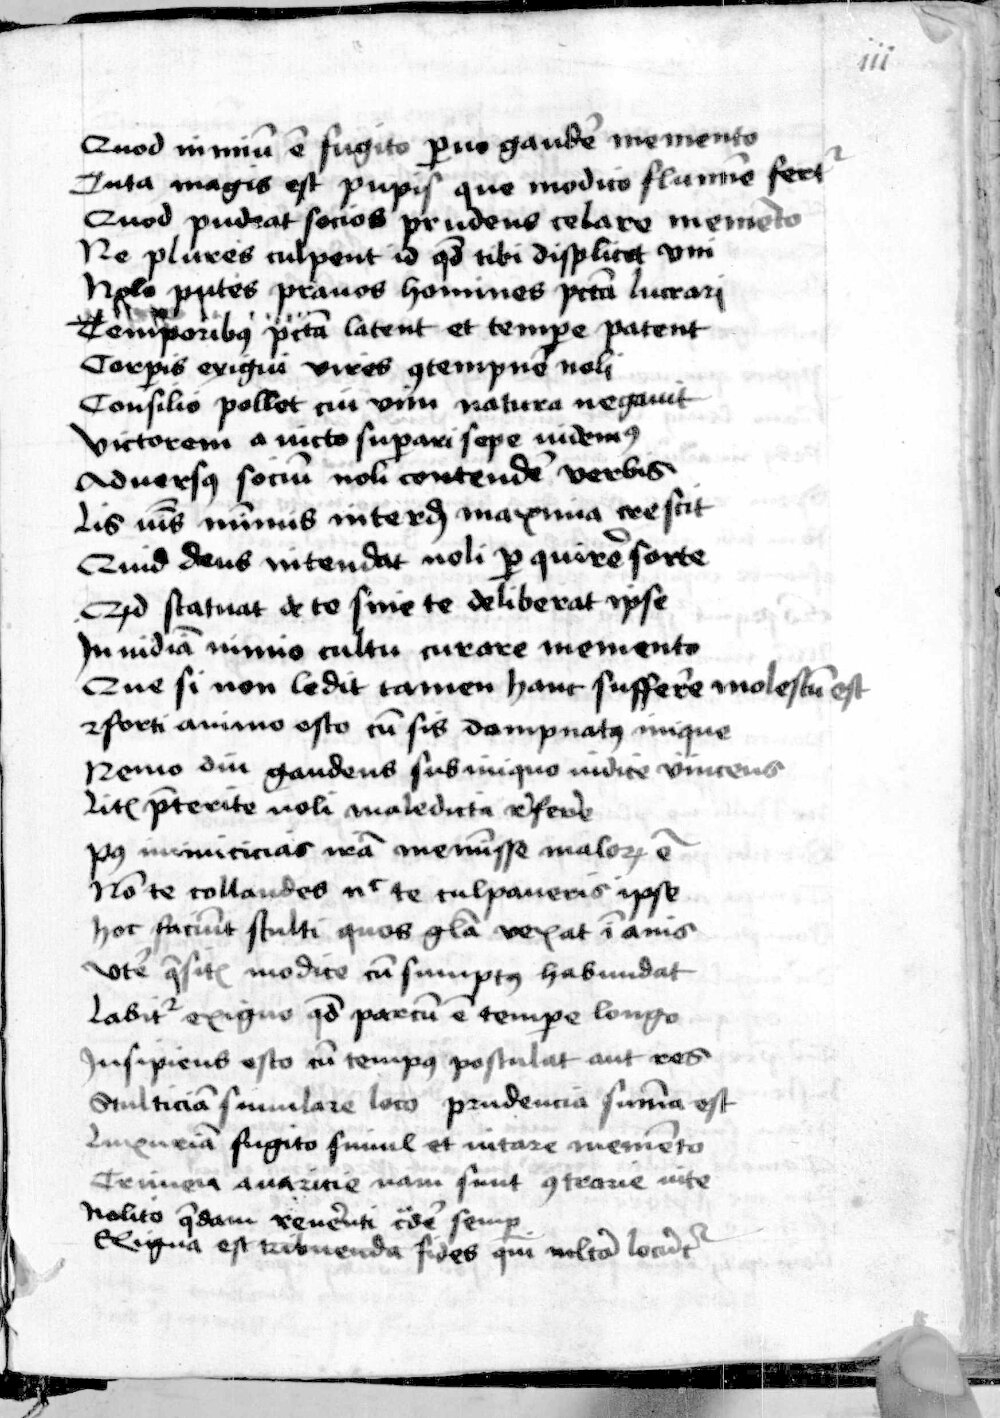 iii
Quod nimiū ē fugito ꝑuo gaudē memento
Tuta magis est pupis que modico flumīe fertᷣ
Quod pudeat socios prudens celare memēto
Ne plures culpent id qđ tibi displicet vni
Nolo putes prauos homines pctā lucrari
Temporibꝰ pctā latent et tempe patent
Corpis exigui vires ꝯtempnē noli
Consilio pollet cui vim natura negauit
Victorem a victo supari sepe videmꝰ
Aduersꝰ sociū noli contendē verbis
Lis v̄is minimis interdū maxima crescit
Quid deus intendat noli ꝑquirē sorte
Qd statuat de te sine te deliberat ipse
Inuidiā nimio cultu curare memento
Que si non ledit tamen hanc sufferre molestū est
forti animo esto cū sis dampnatꝰ inique
Nemo diu gaudens sub iniquo iudice vincens
Litꝭ p̄terite noli maledicta referre
pꝰ inimicicias irā meminisse maloꝝ ē
Nō te collaudes nᶜ te culpaueris ipse
hoc faciūt stulti quos glā vexat īanis
vtē q̄sitꝭ modice cū sumptꝰ habundat
Labitᷣ exiguo qđ partū ē tempe longo
Insipiens esto cū tempꝰ postulat aut res
Stulticiā simulare loco prudencia sūma est
Luxuriā fugito simul et vitare memēto
Crimen auaricie nam sunt ꝯtrarie vite
Nolito q̄dam referenti c̄dē semp
Exigua est tribuenda fides qui multa locūtᷣ